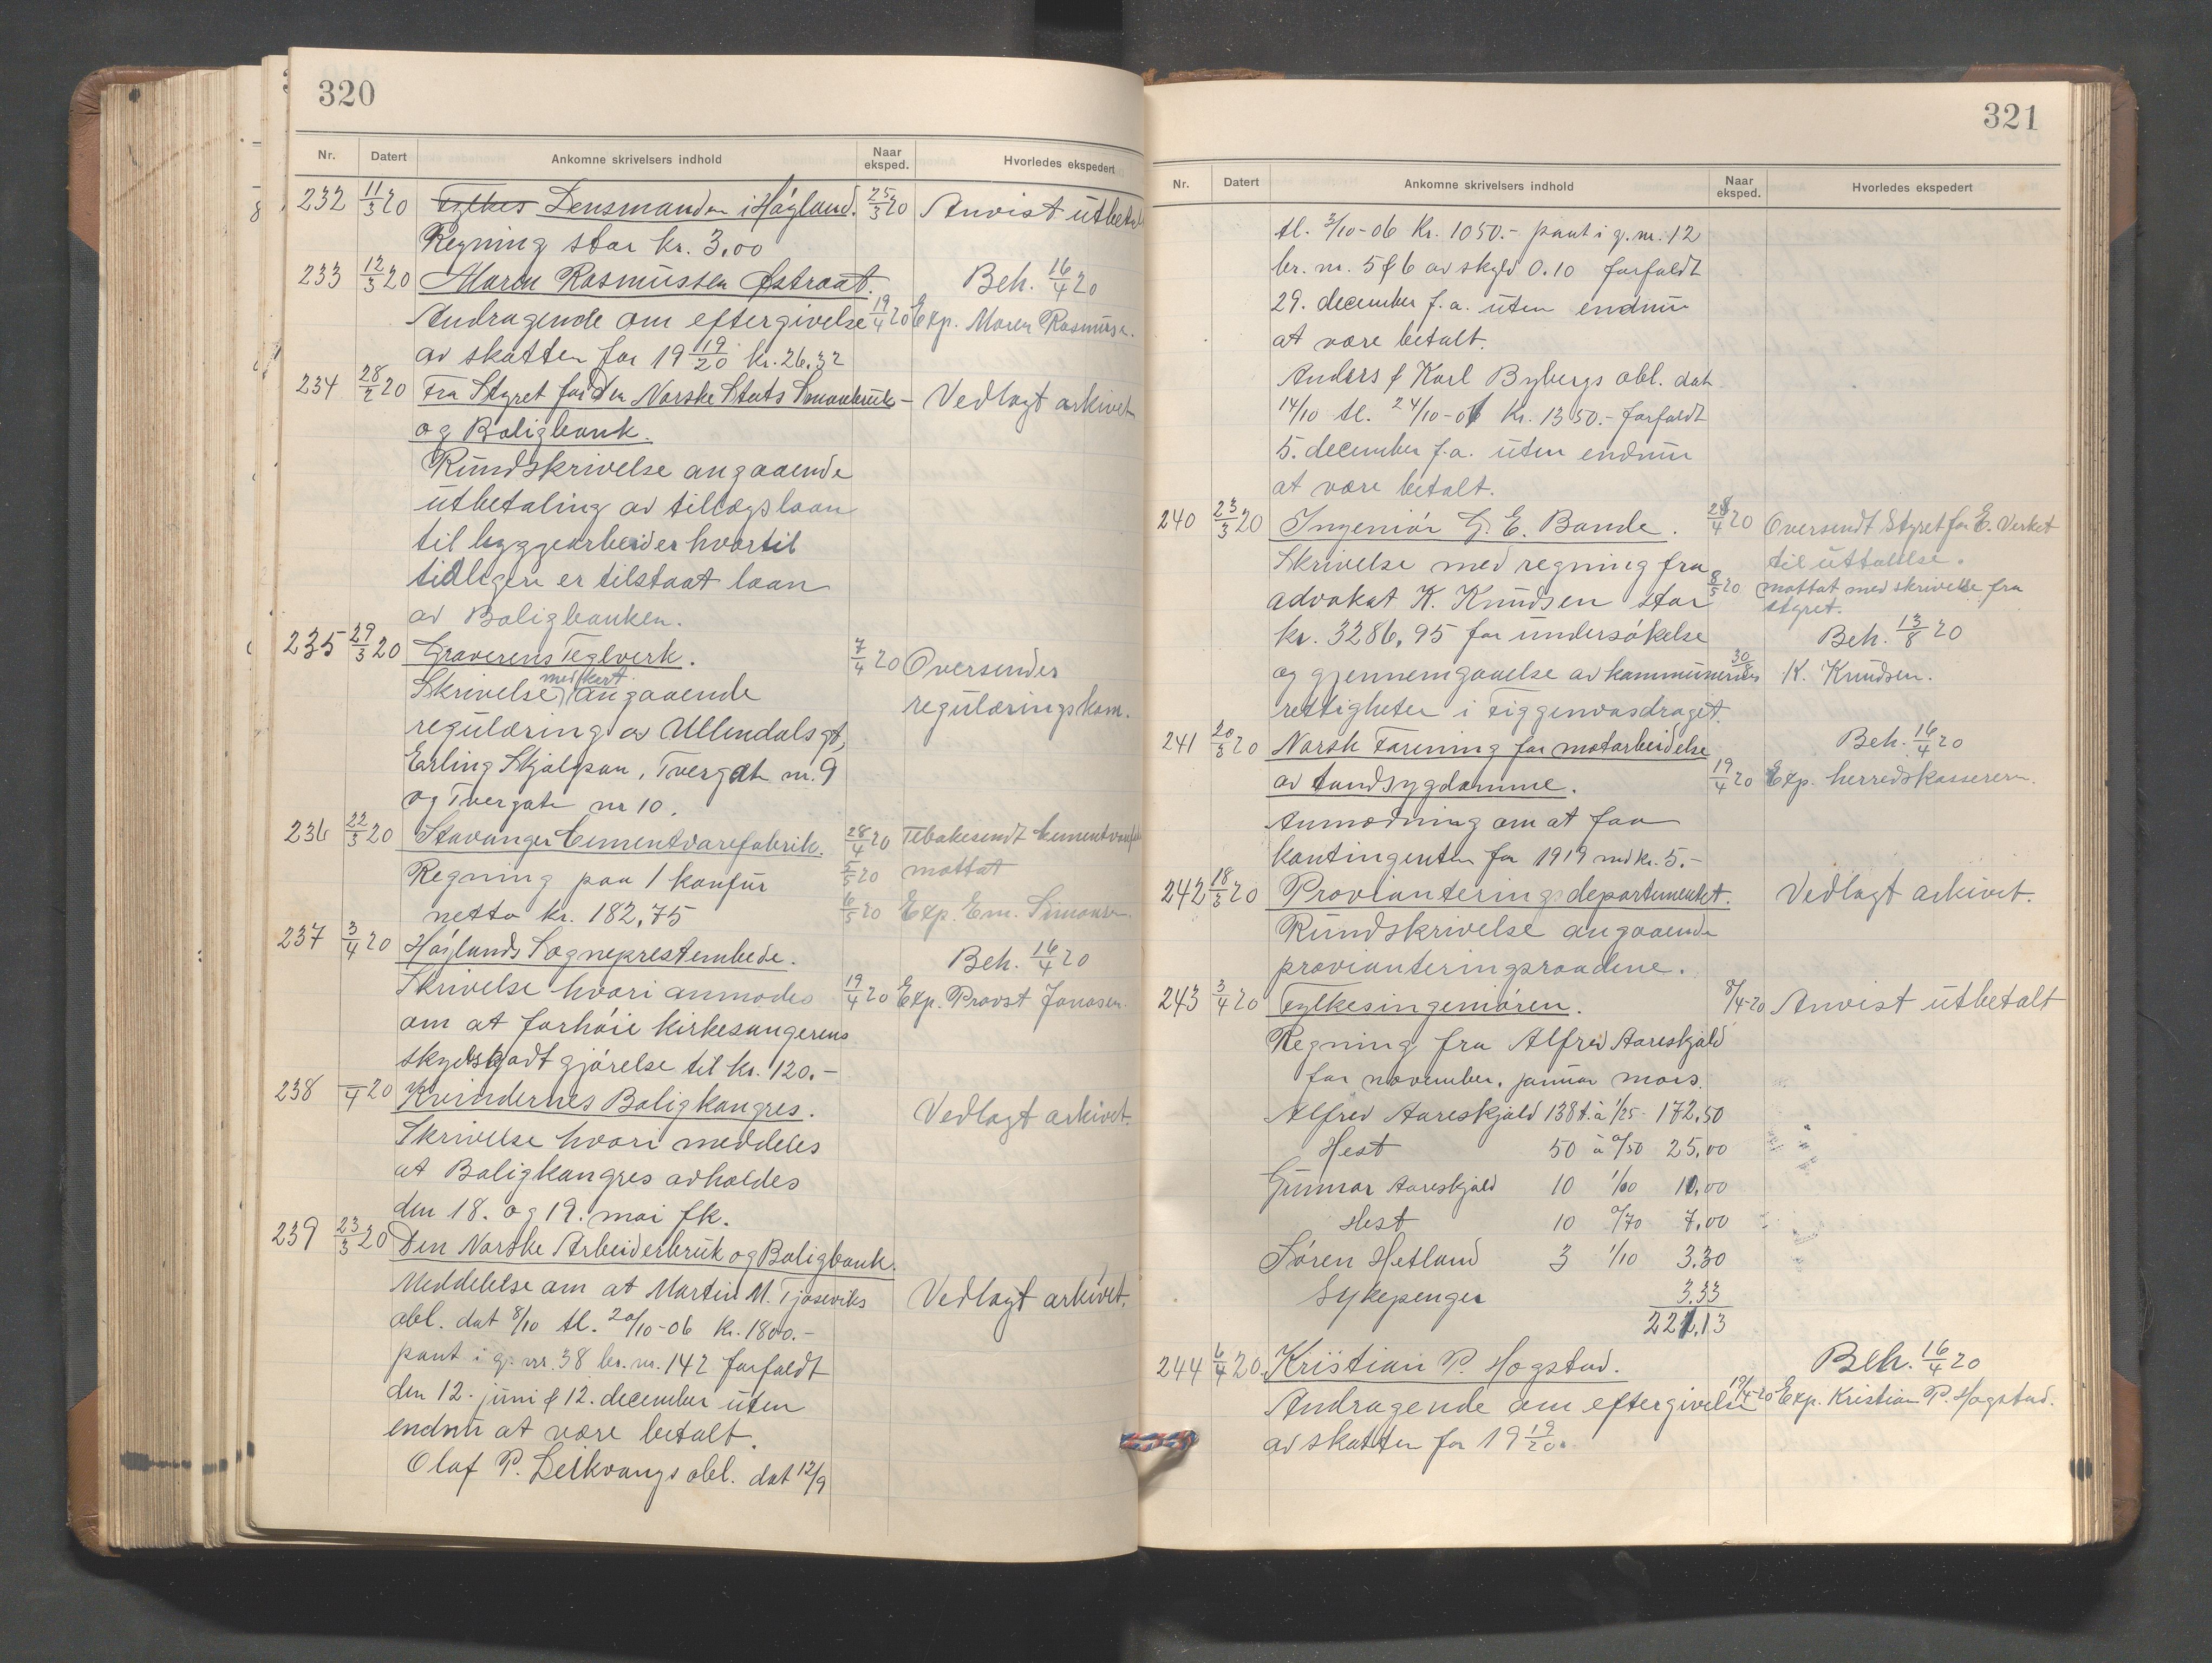 320
Nr. Datert Ankomne skrivelsers indhold Naar eksped. Hvorledes ekspedert
232 11/3 20 Fylkes Lensmanden i Høyland. 25/3 20 Anvist utbetalt
Regning stor kr. 3,00
233 12/3 20 Maren Rasmussen Østraat. Beh. 16/4 20
Andragende om eftergivelse 19/4 20 Exp. Maren Rasmussen.
av skatten for 19 19/20 kr. 26,32
234 28/2 20 Fra Styret for Den Norske Stats Smaabruk- Vedlagt arkivet
og Boligbank.
Rundskrivelse angaaende
utbetaling av tillægslaan
til byggearbeider hvortil
tidligere er tilstaat laan
av Boligbanken.
235 29/3 20 Graverens Teglverk. 7/4 20 Oversendes
Skrivelse med kart angaaende regulæringskom.
regulæring av Ullendalsgt,
Erling Skjalgson, Tvergate nr. 9
og Tvergate nr 10.
236 22/3 20 Stavanger Cementvarefabrik. 28/4 20 Tilbakesendt
Regning paa 1 konfur 5/5 20 mottat
netto kr. 182,75 6/5 20 Exp. Em. Simonsen.
237 3/4 20 Høylands Sogneprestembede. Beh. 16/4 20
Skrivelse hvori anmodes 19/4 20 Exp. Provst Jonasen.
om at forhøie kirkesangerens
skydsgodtgjørelse til kr. 120.-
238 -/4 20 Kvindernes Boligkongres. Vedlagt arkivet.
Skrivelse hvori meddeles
at Boligkongres avholdes
den 18. og 19. mai fk.
239 23/3 20 Den Norske Arbeiderbruk og Boligbank.
Meddelelse om at Martin M. Tjoseviks Vedlagt arkivet.
obl. dat 8/10 tl. 20/10-06 kr. 1800.-
pant i g. nr. 38 br. nr. 142 forfaldt
den 12. juni & 12. december uten
endnu at være betalt.
Olaf P. Leikvangs obl. dat 12/9
321
Nr. Datert Ankomne skrivelsers indhold Naar eksped. Hvorledes ekspedert
tl. 3/10-06 Kr. 1050.- pant i g. nr. 12
br. nr. 5 & 6 av skyld 0.10 forfaldt
29. december f.a. uten endnu
at være betalt.
Anders & Karl Bybergs obl. dat
14/10 tl. 24/10-06 kr. 1350.- forfaldt
5. december f.a. uten endnu
at være betalt.
240 23/3 20 Ingeniør G. E. Bonde. 28/4 20 Oversendt Styret for E. Verket
Skrivelse med regning fra til uttalelse.
advokat K. Knudsen stor 8/5 20 mottat med skrivelse fra styret.
kr. 3286,95 for undersøkelse Beh. 13/8 20
og gjennemgaaelse av kommunernes 30/8 K. Knudsen.
rettigheter i Figgenvasdraget.
241 20/3 20 Norsk Forening for motarbeidelse Beh. 16/4 20
av tandsygdomme. 19/4 20 Exp. herredskassereren.
Anmodning om at faa
kontingenten for 1919 med kr. 5.-
242 18/3 20 Provianteringsdepartementet. Vedlagt arkivet.
Rundskrivelse angaaende
provianteringsraadene.
243 3/4 20 Fylkesingeniøren. 8/4-20 Anvist utbetalt
Regning fra Alfred Aareskjold
for november, januar mars.
Alfred Aareskjold 138 t. à 1/25- 172,50
Hest 50 à 0/50 25,00
Gunnar Aareskjold 10 1/00 10,00
Hest 10 0/70 7,00
Søren Hetland 3 1/10 3.30
Sykepenger 3.33
221,13
244 6/4 20. Kristian P. Hogstad. Beh. 16/4 20
Andragende om eftergivelse 19/4-20 Exp. Kristian P. Hogstad.
av skatten for 19 19/20.